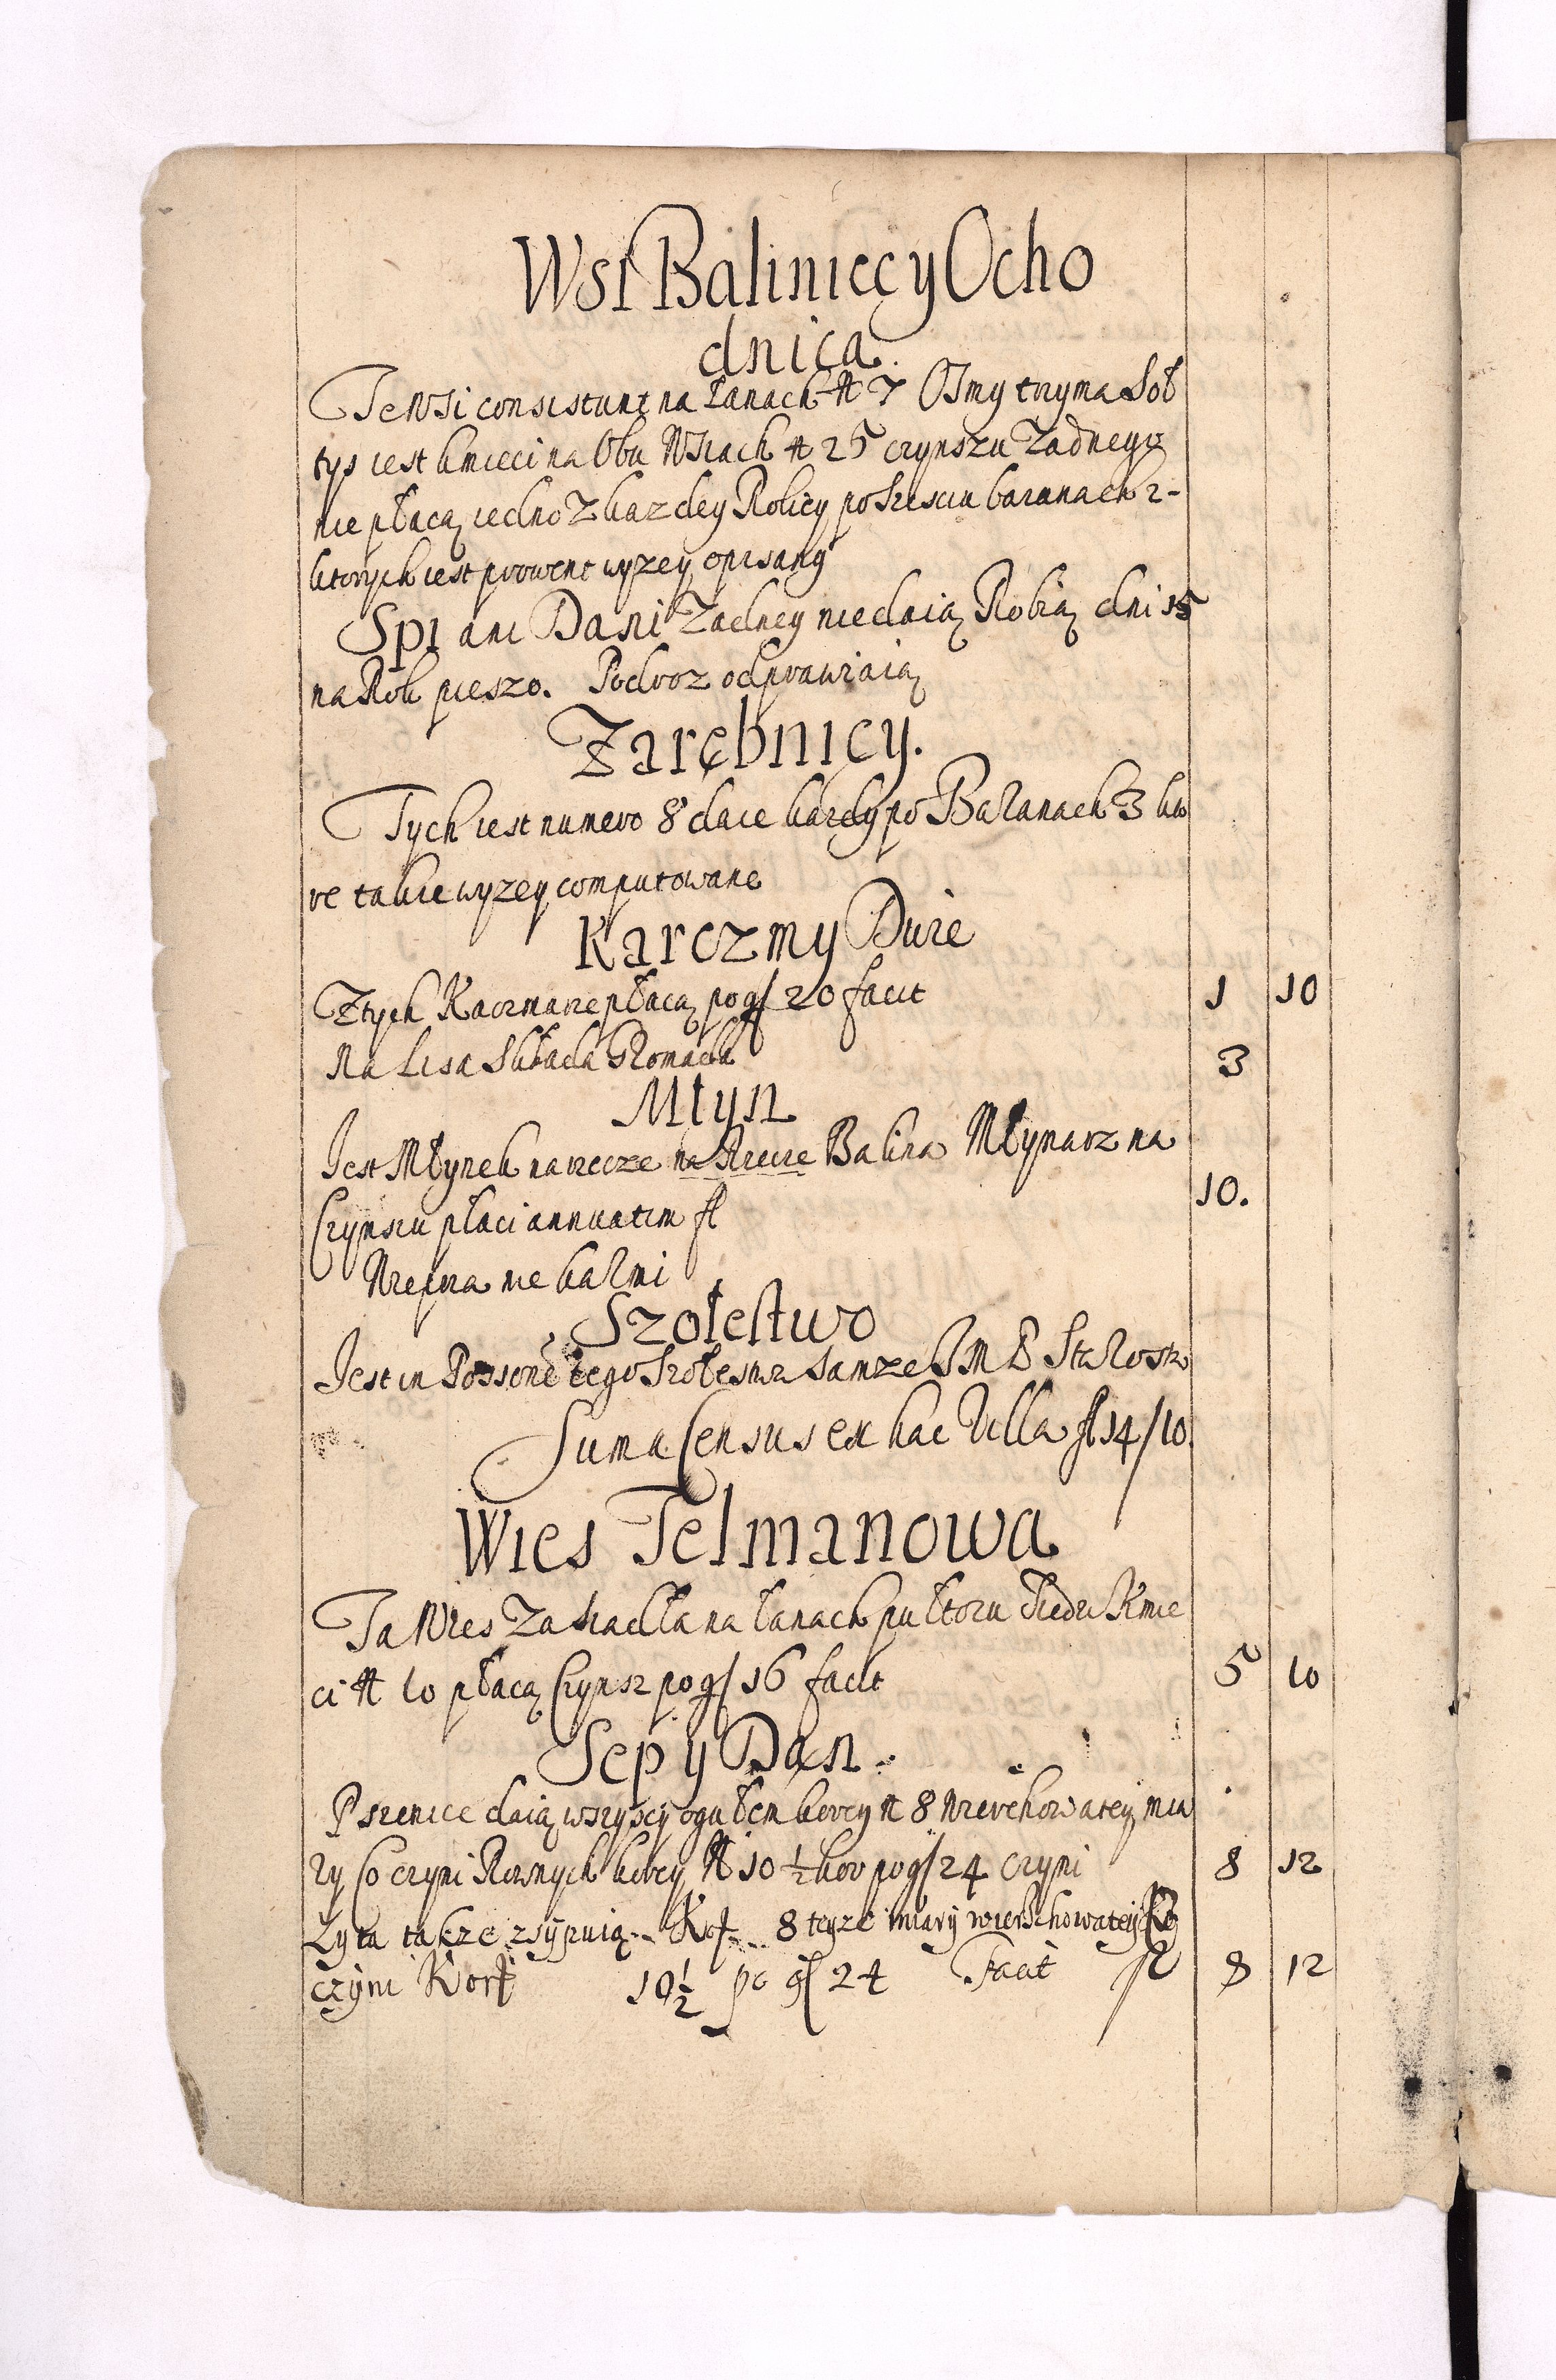 Wsi Baliniec y Ocho
dnica.
Te Wsi consistunt na łanach № 7 Osmy trzyma Soł
tys iest kmieci na Obu Wsiach № 25 czynszu Zadnego
nie płacą iedno z kazdey Rolicy po szesciu baranach z
ktorych iest prowent wyzey opisany
Spi ani Dani Zadney nie daią Robią dni 15
na Rok pieszo. Podroz odprawiaią
Zarębnicy.
Tych iest numero 8 daie kazdy po Baranach 3 kto
re takie wyzey computowane
Karczmy Dwie
Z tych Karczmarze płacą po g/ 20 facit 1 10
Na Lisa składa Gromada 3
Młyn
Jest Młynek na rzecze na Rzece Balina Młynarz na
Czynszu płaci annuatim fl 10.
Wieprza nie karmi
Szołectwo
Jest in Possone tego Szołestwa samze J M P Starosta
Suma Census ex hac Villa fl 14/10.
Wies Telmanowa
Ta Wies Zasiadła na łanach pułtoru siedzi Kmie
ci № 10 płacą Czynsz po g/ 16 facit 5 10
Sep y Dan.
Pszenice daią wszyscy ogułem korcy № 8 wierchowatey mia
ry Co czyni Rownych korcy № 10 ½ kor po g/ 24 czyni 8 12
Zyta takze zsypuią Kor 8 teyze miary wierschowatey Co
czyni Kor 10 ½ po g/ 24 Facit fl 8 12